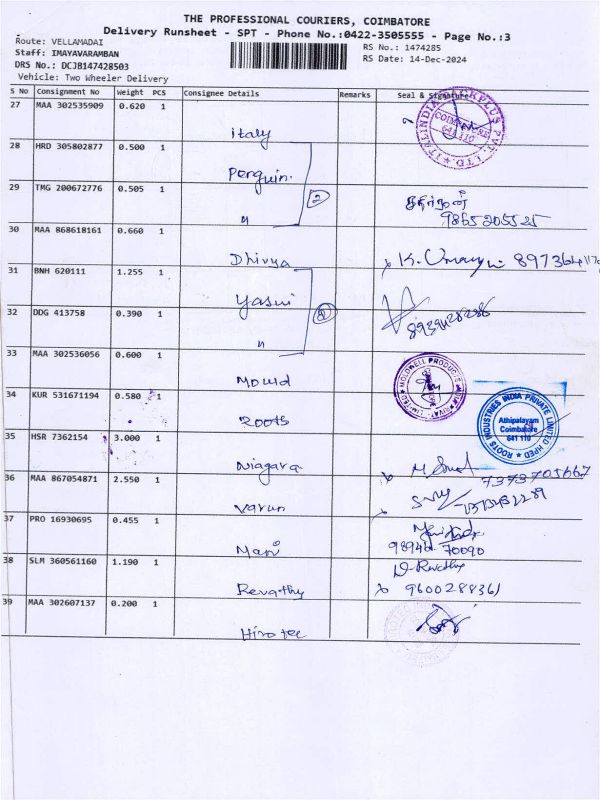 THE PROFESSIONAL COURIERS, COIMBATORE
Delivery Runsheet - SPT - Phone No.:0422-3505555 - Page No.:3
Route: VELLAMADAI
RS No.: 1474285
Staff: IMAYAVARAMBAN
RS Date: 14-Dec-2024
DRS No.: DCJB147428503
Vehicle: Two Wheeler Delivery
S No Consignment No Weight PCS Consignee Details Remarks Seal & Signature
27 MAA 302535909 0.620 1
Italy
COIMBATORE
641 110
28 HRD 305802877 0.500 1
Penguin.
2
29 TMG 200672776 0.505 1
"
9865205525
30 MAA 868618161 0.660 1
Dhivya
31 BNH 620111 1.255 1
Yasni
2
32 DDG 413758 0.390 1
"
33 MAA 302536056 0.600 1
Mould
MOLDWELL PRODUCTS
34 KUR 531671194 0.580 1
Roots
ROOTS INDUSTRIES INDIA PRIVATE LIMITED HPED
Athipalayam
Coimbatore
641 110
35 HSR 7362154 3.000 1
Niagara
7373705667
36 MAA 867054871 2.550 1
Varun
37 PRO 16930695 0.455 1
Mari
98940-70090
38 SLM 360561160 1.190 1
Revathy
D. Revathy
9600288361
39 MAA 302607137 0.200 1
Hiro tec